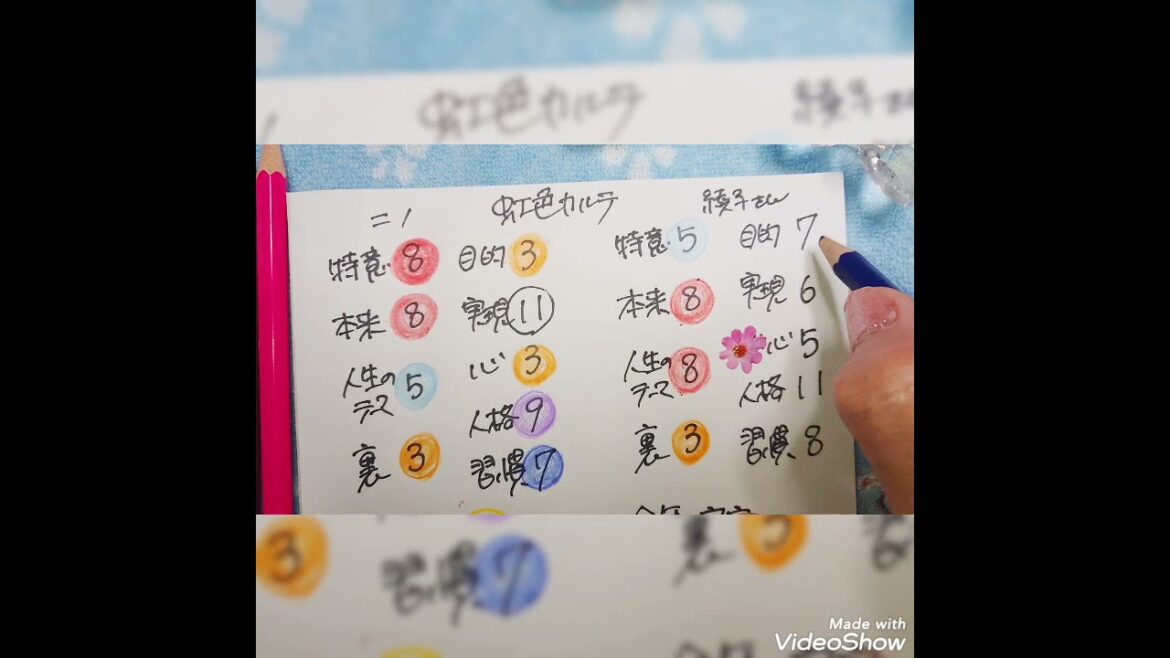 虹色カルテ
=1 虹色カルテ 綾子さん
特意 8 目的 3 特意 5 目的 7
本来 8 実現 11 本来 8 実現 6
人生の テース 5 心 3 人生の テース 8 心 5
人格 9 人格 11
裏 3 習慣 7 裏 3 習慣 8
3 習慣 7 裏 3
Made with
VideoShow